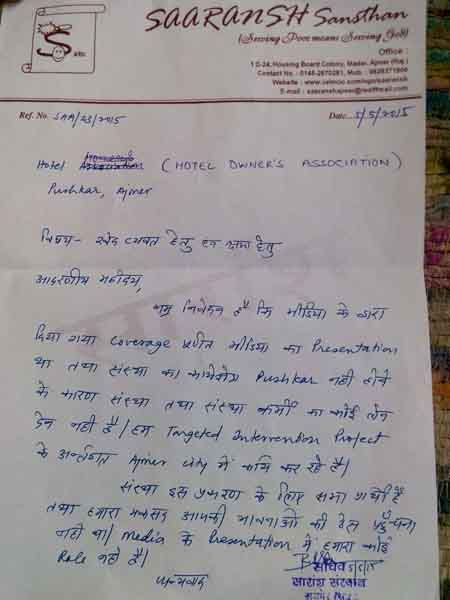 S
SAARANSH Sansthan
(Serving Poor means Serving God)
Office :
1 D-24, Housing Board Colony, Madar, Ajmer (Raj.)
Contact No. : 0145-2670281, Mob. :
Website :
E-mail :
Ref. No. SAA/23/2015
Date 5/5/2015
Hotel (HOTEL OWNER'S ASSOCIATION)
Pushkar, Ajmer
विषय- खेद व्यक्त हेतु एवं क्षमा हेतु
आदरणीय महोदय,
नम्र निवेदन है कि मीडिया के द्वारा
दिया गया Coverage मीडिया का Presentation
था तथा संस्था का कार्यक्षेत्र Pushkar नहीं होने
के कारण संस्था तथा संस्था कर्मी का कोई लेन
देन नहीं है। हम Targeted Intervention Project
के अर्न्तगत Ajmer City में कार्य कर रहे है।
संस्था इस प्रकरण के लिए क्षमा प्रार्थी है
तथा हमारा मकसद आपकी भावनाओ को ठेस पहुँचाना
नहीं था। Media के Presentation में हमारा कोई
Role नहीं है।
धन्यवाद
सचिव
सारांश संस्थान